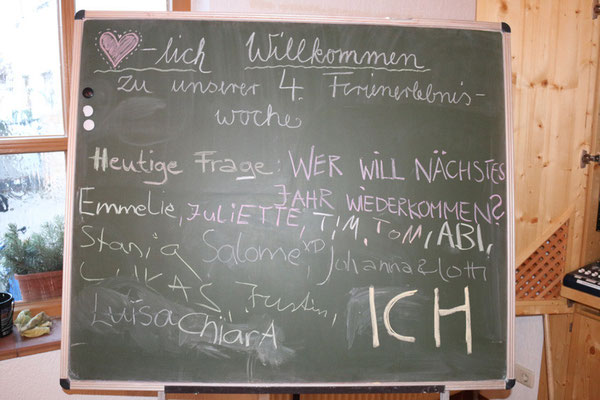 -lich Willkommen
zu unserer 4. Ferienerlebnis-
woche
Heutige Frage: WER WILL NÄCHSTES
JAHR WIEDERKOMMEN?
Emmelie, JuLiETTE, TIM, TOM, ABI,
Salome, Johanna & Lotti
LUKAS,
ICH
LuisA ChiArA